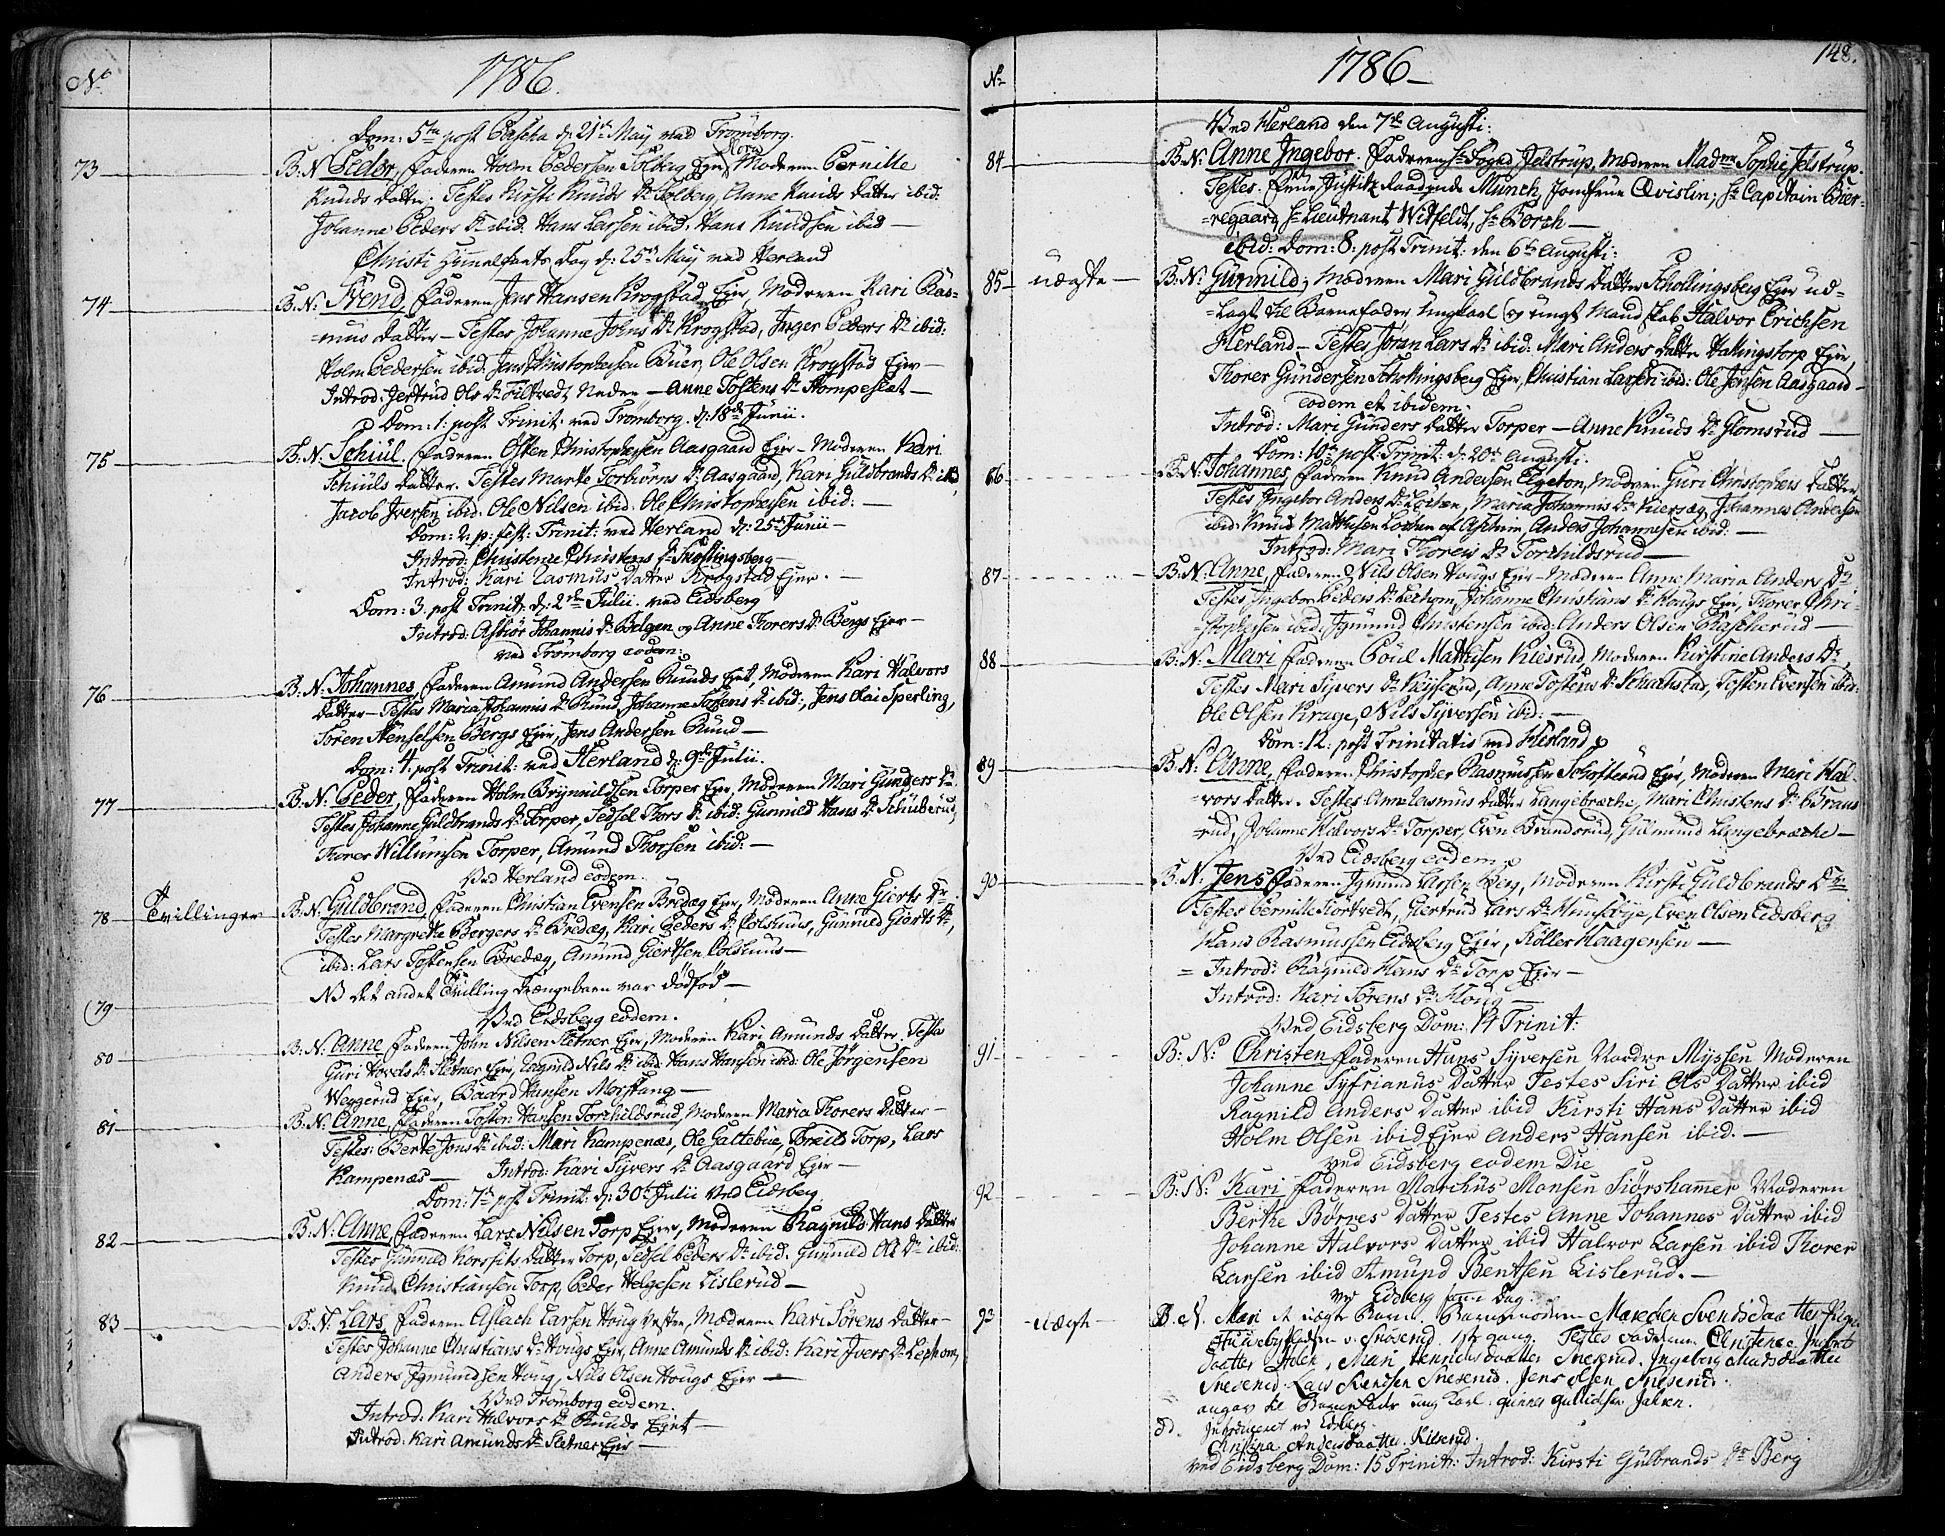 No
1786.
Dom: 5ta post Pascha d: 21de May ved Trømborg.
73
B. N. Peder, Faderen Holm Pedersen Solberg Ejer, Moderen Pernille
Knuds Datter. Testes Kirsti Knuds Dr Solberg, Anne Knuds Datter ibid:
Johanne Peders Dr ibid. Hans Larsen ibid. Hans Knudsen ibid —
Christi Himmelfarts Dag d: 25de May ved Herland
74
B: N: Svend, Faderen Jens Hansen Krogstad Ejer, Moderen Kari Ras=
=mus Datter — Testes Johanne Johns Dr Krogstad, Inger Peders Dr ibid:
Holm Pedersen ibid. Jens Christophersen Buer, Ole Olsen Krogstad Ejer —
Introd: Jertrud Ols Dr Filtvedt Nedre — Anne Tostens Dr Hompeslæt —
Dom: 1. post Trinit: ved Trømborg d: 18de Junii.
75
B. N. Schiul. Faderen Osten Christophersen Aasgaard Ejer — Moderen Kari
Schiuls Datter. Testes Marte Torbiørns Dr Aasgaard, Kari Guldbrands Dr ibid,
Jacob Iversen ibid. Ole Nilsen ibid. Ole Christophersen ibid: —
Dom: 2. p: fest: Trinit: ved Herland d: 25de Junii —
Introd: Christence Christens Dr Skollingsberg —
Introd: Kari Rasmus Datter Krogstad Ejer. —
Dom: 3. post Trinit: d: 2den Julii ved Eidsberg
Introd: Assiør Johannis Dr Belgen og Anne Torers Dr Bergs Ejer —
ved Trømborg eodem:
76
B. N. Johannes, Faderen Amund Andersen Ruuds Ejet, Moderen Kari Halvors
Datter — Testes Maria Johannis Dr Ruud, Johanne Sørens Dr ibid:, Jens Olai Sperling,
Søren Stenselsen Bergs Ejer, Jens Andersen Ruud —
Dom: 4. post Trinit: ved Herland d: 9de Julii.
77
B: N: Peder, Faderen Holm Brynnildsen Torper Ejer, Moderen Mari Gunders Dr.
Testes Johanne Guldbrands Dr Torper, Sedsel Tors Dr ibid: Gunnild Hans Dr Schuberud,
Torer Willumsen Torper, Amund Thorsen ibid: —
Ved Herland eodem.
78
Tvillinger
B: N: Guldbrand, Faderen Christian Evensen Bredæg Ejer, Moderen Anne Gierts Dr.
Testes Margrethe Bergers Dr Bredæg, Kari Peders Dr Polshuus, Gunnild Gierts Dr,
ibid: Lars Tostensen Bredæg, Amund Giertsen Polshuus —
NB det andet Tvilling Drængebarn var dødfød —
(79
Ved Eidsberg eodem.
80
B: N: Anne, Faderen John Nilsen Sletner Ejer, Moderen Kari Amunds Datter. Testes
Guri Povels Dr Sletner Ejer, Ragnild Nils Dr ibid Hans Hansen ibid: Ole Jørgensen
Heggerud Ejer, Baard Hansen Morstang —
81
B: N: Anne, Faderen Tosten Hansen Torchildsrud, Moderen Maria Torers Datter —
Testes: Berte Jons Dr ibid: Mari Kampenæs, Ole Galtebue, Troeild Torp, Lars
Kampenæs — Introd: Kari Syvers Dr Aasgaard Ejer —
Dom: 7de post Trinit: d: 30te Julii Ved Eidsberg
82
B: N: Anne, Faderen Lars Nilsen Torp Ejer, Moderen Ragnild Hans Datter
Testes Gunnild Datter Torp, Sedsel Peders Dr ibid. Gunnild Ole Dr ibid:
Knud Christiansen Torp, Peder Helgesen Lislerud —
83
B: N: Lars, Faderen Aslach Larsen Houg Vestre, Moderen Kari Sørens Datter —
Testes Johanne Christians Dr Hougs Ejer, Anne Amunds Dr ibid: Kari Ivers Dr Lekom,
Anders Igmundsen Houg, Nils Olsen Hougs Ejer —
Ved Trømborg eodem.
Introd: Kari Halvors Dr Ruuds Ejet —
Introd: Kari Amunds Dr Sletner Ejer —
No
1786 —
148.
Ved Herland den 7de Augusti:
84
B: N: Anne Ingebor. Faderen Hr Foged Jelstrup, Moderen Madme Sophie Jelstrup.
Testes. Frue Justitz Raadinde Munch, Jomfrue Qvislin; Hr Capitain Bier=
=regaard Hr Lieutnant Witfeldt, Hr Borch —
ibid: Dom: 8. post Trinit: den 6te Augusti:
85
uægte —
B: N: Gunnild; Moderen Mari Guldbrands Datter Schollingsberg Ejer ud=
=lagt til Barnefader Ungkarl og ringt Mandskab Halvor Erichsen
Herland — Testes Jøran Lars Dr ibid: Mari Anders Datter Hallingstorp Ejer,
Torer Gundersen Schollingsberg Ejer, Christian Larsen ibid: Ole Jensen Aasgaard —
eodem et ibidem.
Introd: Mari Gunders Datter Torper — Anne Knuds Dr Glomsrud —
Dom: 10de post Trinit: d: 20de Augusti.
86
B: N: Johannes, Faderen Knud Andersen Egeton, Moderen Guri Christophers Datter,
Testes Ingebor Anders Dr Løchen, Maria Johannis Dr Kiersæg, Johannes Andersen
ibid: Knud Mathisen Løchen af Aschim, Anders Johannesen ibid: —
Introd: Mari Torers Dr Torchildsrud —
87
B: N: Anne, Faderen Nils Olsen Hougs Ejer — Moderen Anne Maria Anders Dr
Testes Ingebor Peders Dr Lekom, Johanne Christians Dr Hougs Ejer, Torer Chri=
stophersen ibid. Igmund Christensen ibid: Anders Olsen Rascherud —
88
B: N: Mari Faderen Poul Mathisen Kilsrud, Moderen Kirstine Anders Dr,
Testes Mari Syvers Dr Kiyserud, Anne Tostens Dr Schachstad, Tosten Evensen ibid:
Ole Olsen Krage, Nils Syversen ibid: —
Dom: 12. post Trinitatis ved Herland
89
B: N: Anne, Faderen Christopher Rasmussen Ejer, Moderen Mari Hal=
=vors Datter. Testes Anne Rasmus Datter Langebreche, Mari Christens Dr Brand
=rud, Johanne Halvors Dr Torper, Even Brandsrud, Gulmund Langebreche —
Ved Eidsberg eodem
90
B: N: Jens, Faderen Igmund Larsen Berg, Moderen Kirsti Guldbrands Dr
Testes Pernille Tortvedt, Giertrud Lars Dr Huusebye, Even Olsen Eidsberg
Hans Rasmussen Eidsberg Ejer, Køller Haagensen —
= Introd: Ragnild Hans Dr Torp Ejer —
Introd: Kari Sørens Dr Houg —
Ved Eidsberg Dom: 14 Trinit:
91
B: N: Christen Faderen Hans Syversen Nordre Myssen Moderen
Johanne Syfrianus Datter Testes Siri Ols Datter ibid
Ragnild Anders Datter ibid Kirsti Hans Datter ibid
Holm Olsen ibid Ejer Anders Hansen ibid. —
ved Eidsberg eodem Die
92
B: N: Kari Faderen Marchus Monsen Siørshammer Moderen
Berthe Børres Datter Testes Anne Johannes Datter ibid
Johanne Halvors Datter ibid Halvor Larsen ibid Torer
Larsen ibid Amund Bentsen Lislerud. —
ved Eidberg samme Dag
93
uægt —
B. N. Mari et uægte Barn. Barnemoderen Mareden Svendsdaatter
v. Snesrud 1ste gang. Testes vadderne Christence
daatter Mari Hennings daatter Snesrud. Ingeborg Mads daatter
Snesrud. Lars Svendsen Snesrud. Jens Olsen Snesrud.
angav til Barnefader ung Karl Gunder Gullichsen Jahren.
Introduceret ved Eidberg.
Christina Anders Daatter Kilsrud.
ved Eidsberg Dom: 15 Trinit: Introd: Kirsti Gulbrands Dr Berg